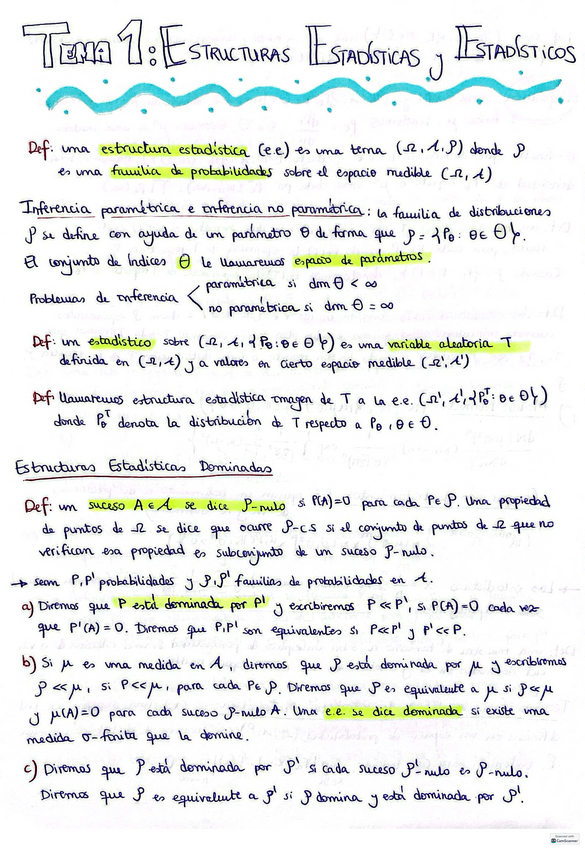 TEMA 1: ESTRUCTURAS ESTADÍSTICAS y ESTADÍSTICOS
Def: una estructura estadística (e.e) es una terna (Ω, 𝒜, 𝒫) donde 𝒫
es una familia de probabilidades sobre el espacio medible (Ω, 𝒜)
Inferencia paramétrica e inferencia no paramétrica: la familia de distribuciones
𝒫 se define con ayuda de un parámetro θ de forma que 𝒫 = {Pθ: θ ∈ Θ}.
El conjunto de índices Θ le llamaremos espacio de parámetros.
Problemas de inferencia < paramétrica si dim Θ < ∞
no paramétrica si dim Θ = ∞
Def: un estadístico sobre (Ω, 𝒜, {Pθ: θ ∈ Θ}) es una variable aleatoria T
definida en (Ω, 𝒜) y a valores en cierto espacio medible (Ω', 𝒜')
Def: llamaremos estructura estadística imagen de T a la e.e. (Ω', 𝒜', {Pθᵀ: θ ∈ Θ})
donde Pθᵀ denota la distribución de T respecto a Pθ, θ ∈ Θ.
Estructuras Estadísticas Dominadas
Def: un suceso A ∈ 𝒜 se dice 𝒫-nulo si P(A)=0 para cada P ∈ 𝒫. Una propiedad
de puntos de Ω se dice que ocurre 𝒫-c.s si el conjunto de puntos de Ω que no
verifican esa propiedad es subconjunto de un suceso 𝒫-nulo.
→ sean P, P' probabilidades y 𝒫, 𝒫' familias de probabilidades en 𝒜.
a) Diremos que P está dominada por P' y escribiremos P << P', si P(A)=0 cada vez
que P'(A)=0. Diremos que P, P' son equivalentes si P<<P' y P'<<P.
b) Si μ es una medida en 𝒜, diremos que 𝒫 está dominada por μ y escribiremos
𝒫 << μ, si P<<μ, para cada P ∈ 𝒫. Diremos que 𝒫 es equivalente a μ si 𝒫<<μ
y μ(A)=0 para cada suceso 𝒫-nulo A. Una e.e. se dice dominada si existe una
medida σ-finita que la domine.
c) Diremos que 𝒫 está dominada por 𝒫' si cada suceso 𝒫'-nulo es 𝒫-nulo.
Diremos que 𝒫 es equivalente a 𝒫' si 𝒫 domina y está dominada por 𝒫'.
CamScanner